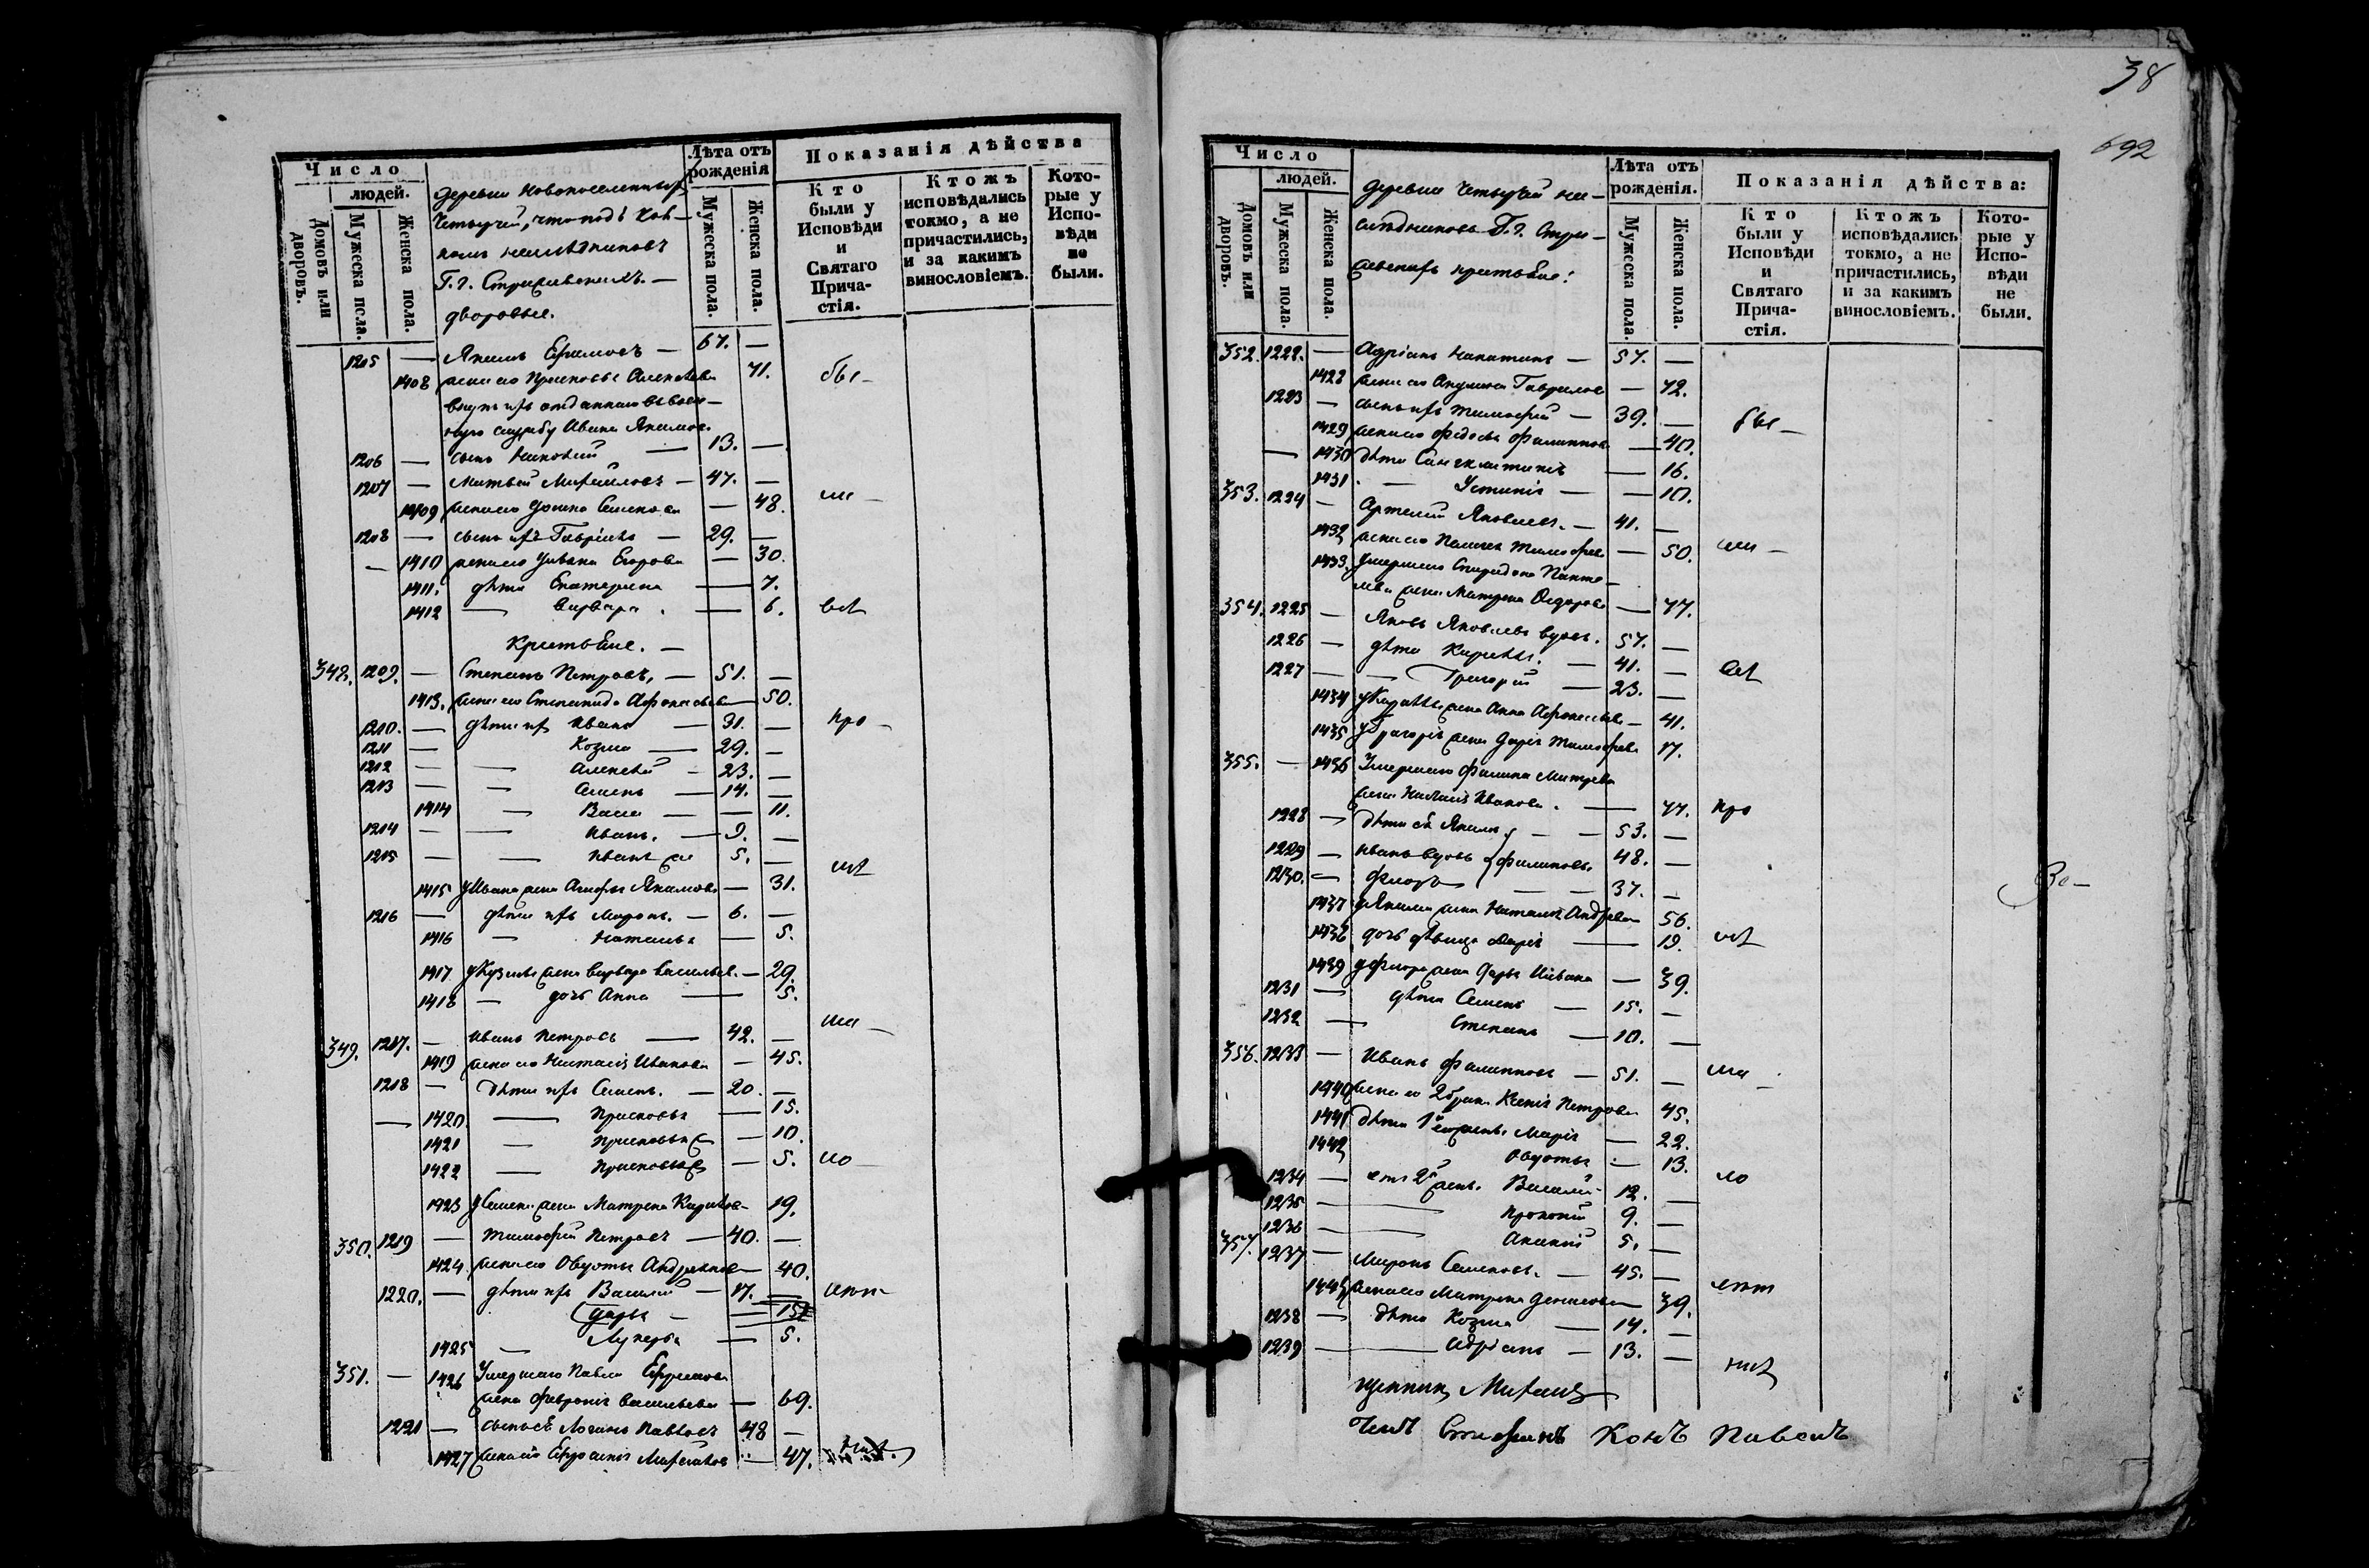 38
692
Число
людей.
Домовъ или дворовъ.
Мужеска пола.
Женска пола.
деревни Новопоселенныхъ
Четыучей, что подъ Хов-
наслѣдниковъ
Г. г.
дворовые.
Лѣта отъ рожденія
Мужеска пола.
Женска пола.
Показанія дѣйства
Кто были у Исповѣди и Святаго Прича-стія.
Ктожъ исповѣдались токмо, а не причастились, и за какимъ винословіемъ.
Кото-рые у Испо-вѣди не были.
1205 — Якимъ Ефимовъ — 67. —
1408 жена его Прасковья Алексѣева 71. бы-
внукъ ихъ отданнаго въ воен-
ную службу Ивана Якимов.
1206 — сынъ — 13. —
1207 — Матвѣй Михайловъ — 47. —
1409 жена его Домна Семенова — 48. ли-
1208 — сынъ ихъ Гавріилъ — 29. —
— 1410 жена его Ульяна Егорова — 30.
1411. дѣти Екатерина — 7.
1412 — Варвара. — 6. всѣ
Крестьяне. —
348. 1209. — Степанъ Петровъ, — 51. —
1413. жена его Степанида Афонасьева — 50.
1210. — дѣти ихъ Иванъ — 31. — при-
1211 — Козма — 29. —
1212 — — Алексѣй — 23. —
1213 — — Семенъ — 14. —
1414 — Васса — — 11.
1214 — — Иванъ. — 9. —
1215 — — Иванъ же 5. —
1415 у Ивана жена Агафья Якимова — 31.
1216 — дѣти ихъ Миронъ. — 6. —
1416 — Наталья — 5.
1417 у Кузьмы жена Варвара Васильев. — 29.
1418 — дочь Анна — 5.
349. 1217. — Иванъ Петровъ — 42. —
1419 жена его Наталія Иванова — 45.
1218 — дѣти ихъ Семенъ. — 20. —
— 1420. — Прасковья — 15.
1421 — Прасковья ж — 10.
1422 — Прасковья ж — 5.
1423 у Семена жена Матрена Карпова — 19.
350. 1219 — Тимофей Петровъ — 40. —
1424. жена его Авдотья Андреянов — 40.
1220. — дѣти ихъ Василій — 17. —
Дарья — 15
1425 — Лукерья — 5.
351. — 1426 Умершаго Павла Ефремова
жена Февронія Васильева — 69.
1221 — сынъ ея Логинъ Павловъ 48 —
1427 жена его Ефросинія Михайлов — 47.
Число
людей.
Домовъ или дворовъ.
Мужеска пола.
Женска пола.
деревни Четыучей на-
слѣдниковъ Г. г.
крестьяне:
Лѣта отъ рожденія.
Мужеска пола.
Женска пола.
Показанія дѣйства:
Кто были у Исповѣди и Святаго Прича-стія.
Ктожъ исповѣдались токмо, а не причастились, и за какимъ винословіемъ.
Кото-рые у Испо-вѣди не были.
352. 1222. — Адріанъ — 57. —
1428 жена его Акулина Гаврилов — 42.
1223 — сынъ ихъ Тимофей — 39. — бы-
1429 жена его Федосья Филиппов — 40.
— 1430 дѣти Синклитикія — 16.
1431. — Устинія — — 10.
353. 1224 — Артемій Яковлевъ. — 41. —
1432 жена его Пелагея Тимофеев — 50. ли-
1433. Умершаго Спиридона Панте-
лѣев жена Матрена Федорова — 77.
354. 1225 — Яковъ Яковлевъ вдовъ. 57. —
1226 — дѣти — 41. — всѣ
1227 — — Григорій — 23. —
1434 жена Анна Афонасьева — 41.
1435 у Григорія жена Дарія Тимофеев 17.
355. — 1436 Умершаго Филипа Митрева
жена Наталія Иванова. — 77. при
1228 — дѣти ея Якимъ — — 53. —
1229 — Иванъ вдовъ Филиповъ. 48. —
1230. — Флоръ — — 37. —
1437 у Якима жена Наталія Андреева 56.
1438 дочь дѣвица Марія — 19.
1439 у Флора жена Дарья Иванова — 39.
1231 — дѣти Семенъ — 15. —
1232 — Степанъ — 10. —
356. 1233 — Иванъ Филипповъ — 51. —
1440 жена его 2 брака Ксенія Петрова 45.
1441 дѣти 1й жены Марія — 22.
1442 Авдотья — 13.
1234 — отъ 2й жены. Василій 12. —
1235 — Прокопій 9. —
1236 — Ананій 5. —
357. 1237 — Миронъ Семеновъ. — 45. —
1443 жена его Матрена Денисова — 39.
1238 — дѣти Козма — 14. —
1239 — Адріанъ — 13. —
щенникъ Михаилъ
Стефанъ Павелъ